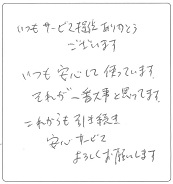 いつもサービス提供ありがとう
ございます
いつも安心して使っています。
それが一番大事と思ってます。
これからも引き続き
安心サービス
よろしくお願いします